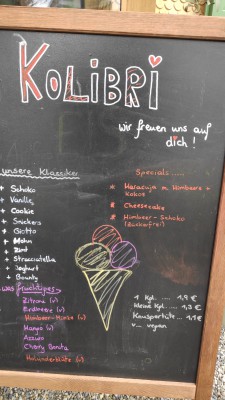 KOLIBRI
wir freuen uns auf
dich!
unsere Klassiker
+ Schoko
+ Vanille
+ Cookie
+ Snickers
+ Giotto
+ Mohn
+ Zimt
+ Stracciatella
+ Joghurt
+ Bounty
Specials.....
Maracuja m. Himbeere +
Kokos
Cheesecake
Himbeer-Schoko
(Zuckerfrei)
was fruchtiges
Zitrone (v)
Erdbeere (v)
Himbeer- (v)
Mango (v)
Azzuro
Cherry Banita
Holunderblüte (v)
1 Kgl. .... 1,9 €
kleine Kgl. ... 1,3 €
v... vegan